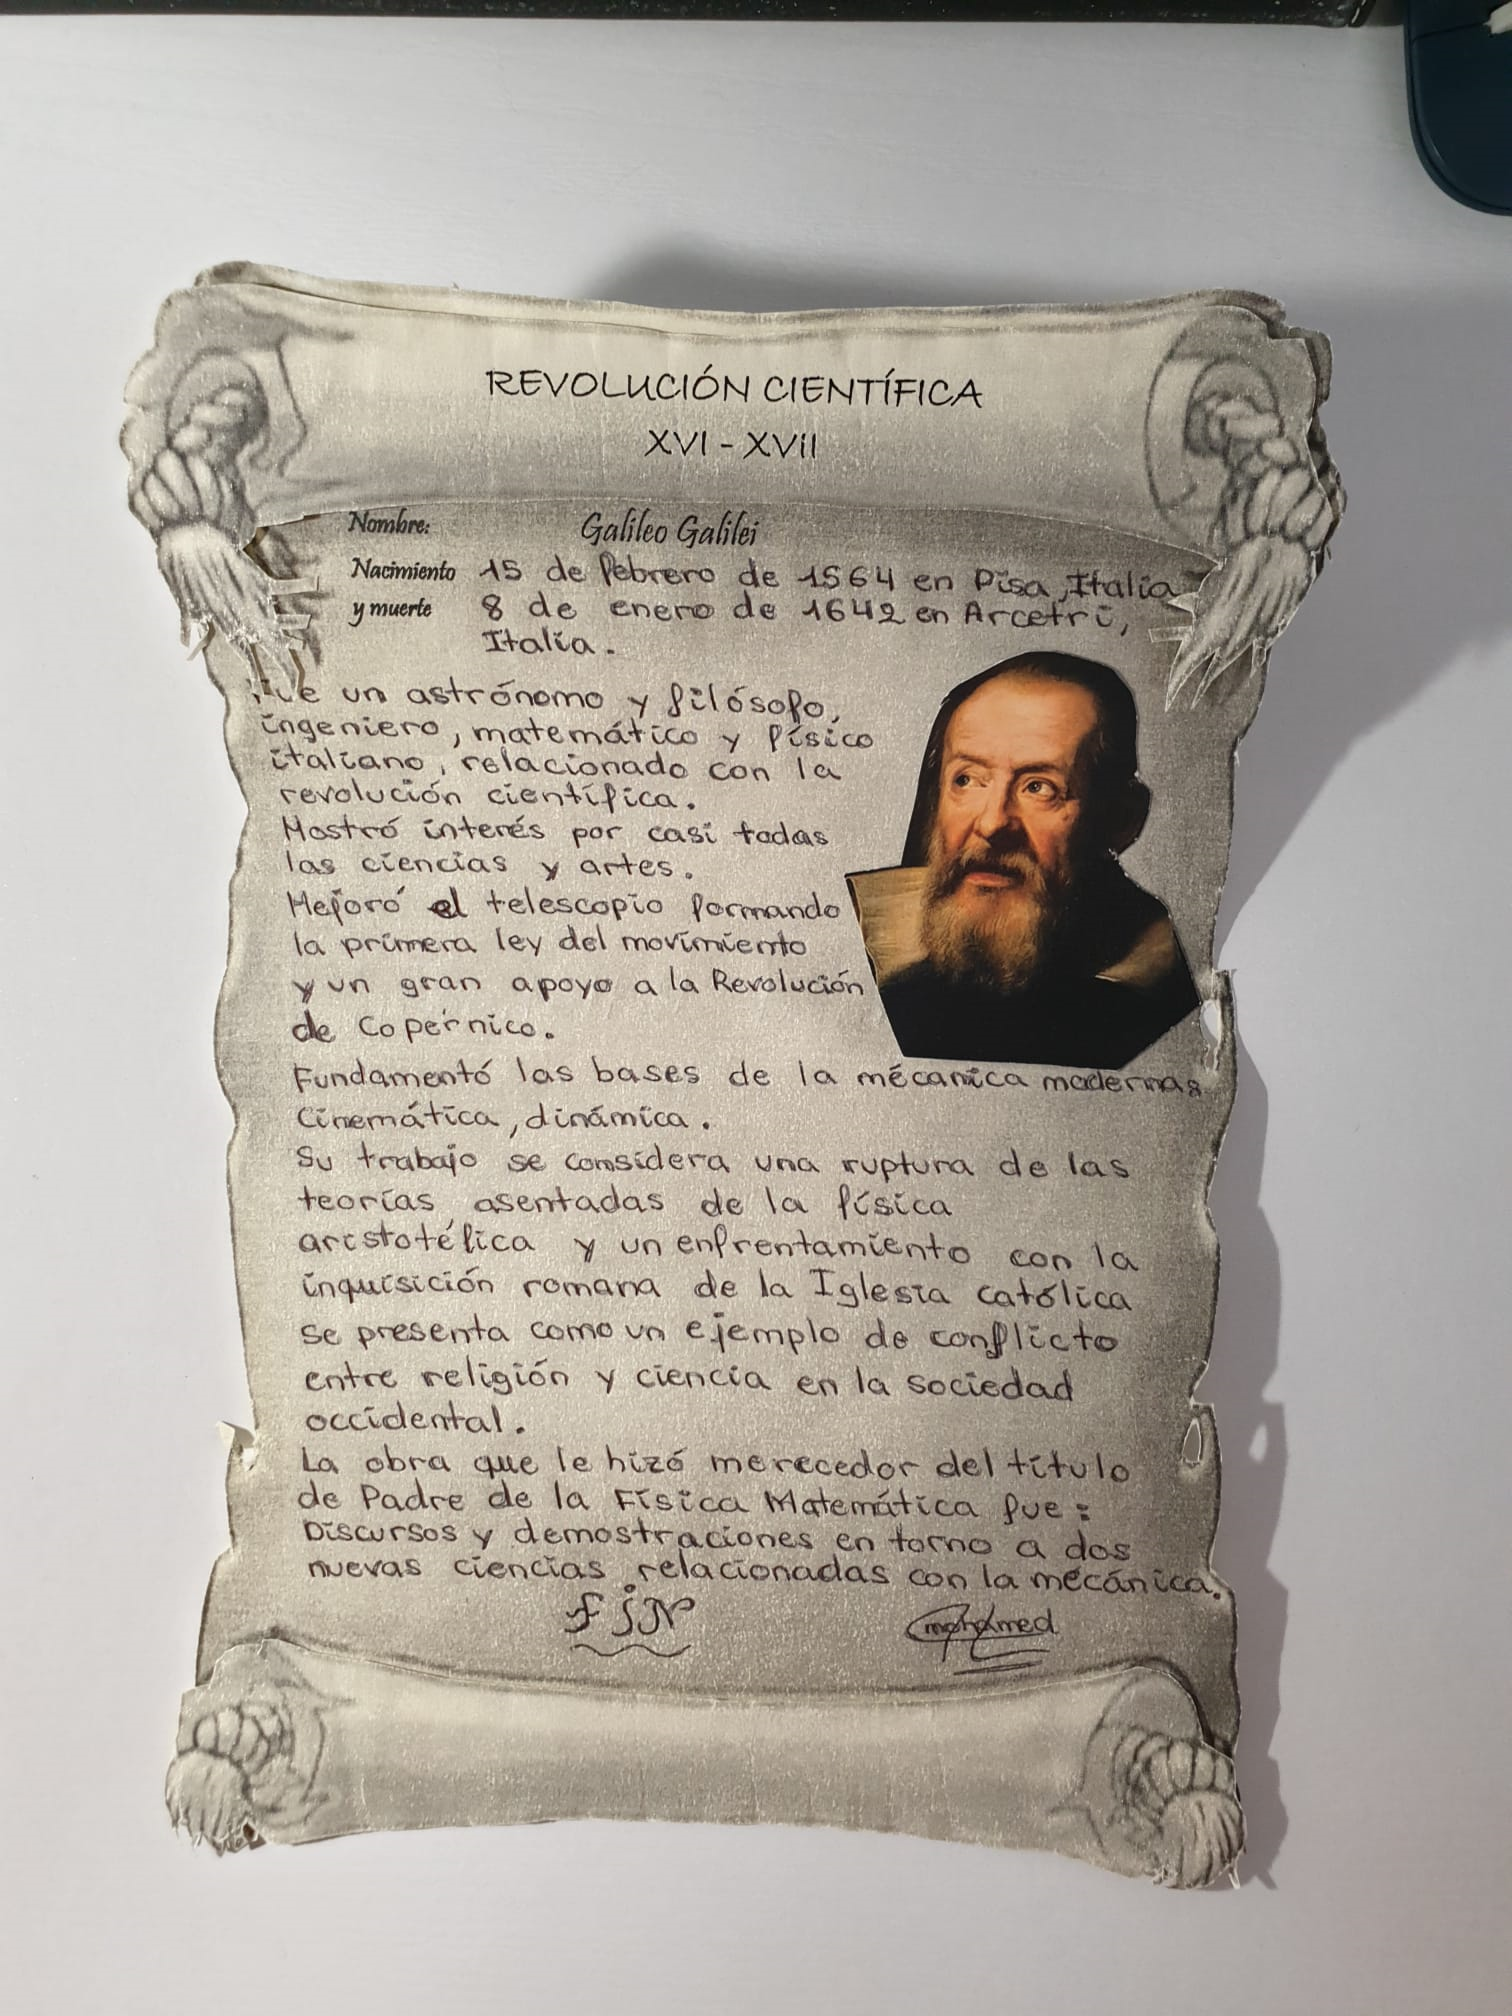 REVOLUCIÓN CIENTÍFICA
XVI - XVII
Nombre: Galileo Galilei
Nacimiento 15 de febrero de 1564 en Pisa, Italia
y muerte 8 de enero de 1642 en Arcetri,
Italia.
un astrónomo y filósofo,
ingeniero, matemático y físico
italiano, relacionado con la
revolución científica.
Mostró interés por casi todas
las ciencias y artes.
Mejoró el telescopio formando
la primera ley del movimiento
y un gran apoyo a la Revolución
de Copérnico.
Fundamentó las bases de la mécanica modernas
Cinemática, dinámica.
Su trabajo se considera una ruptura de las
teorías asentadas de la física
aristotélica y un enfrentamiento con la
inquisición romana de la Iglesia católica
se presenta como un ejemplo de conflicto
entre religión y ciencia en la sociedad
occidental.
La obra que le hizó merecedor del título
de Padre de la Física Matemática fue:
Discursos y demostraciones en torno a dos
nuevas ciencias relacionadas con la mecánica.
FIN mohamed